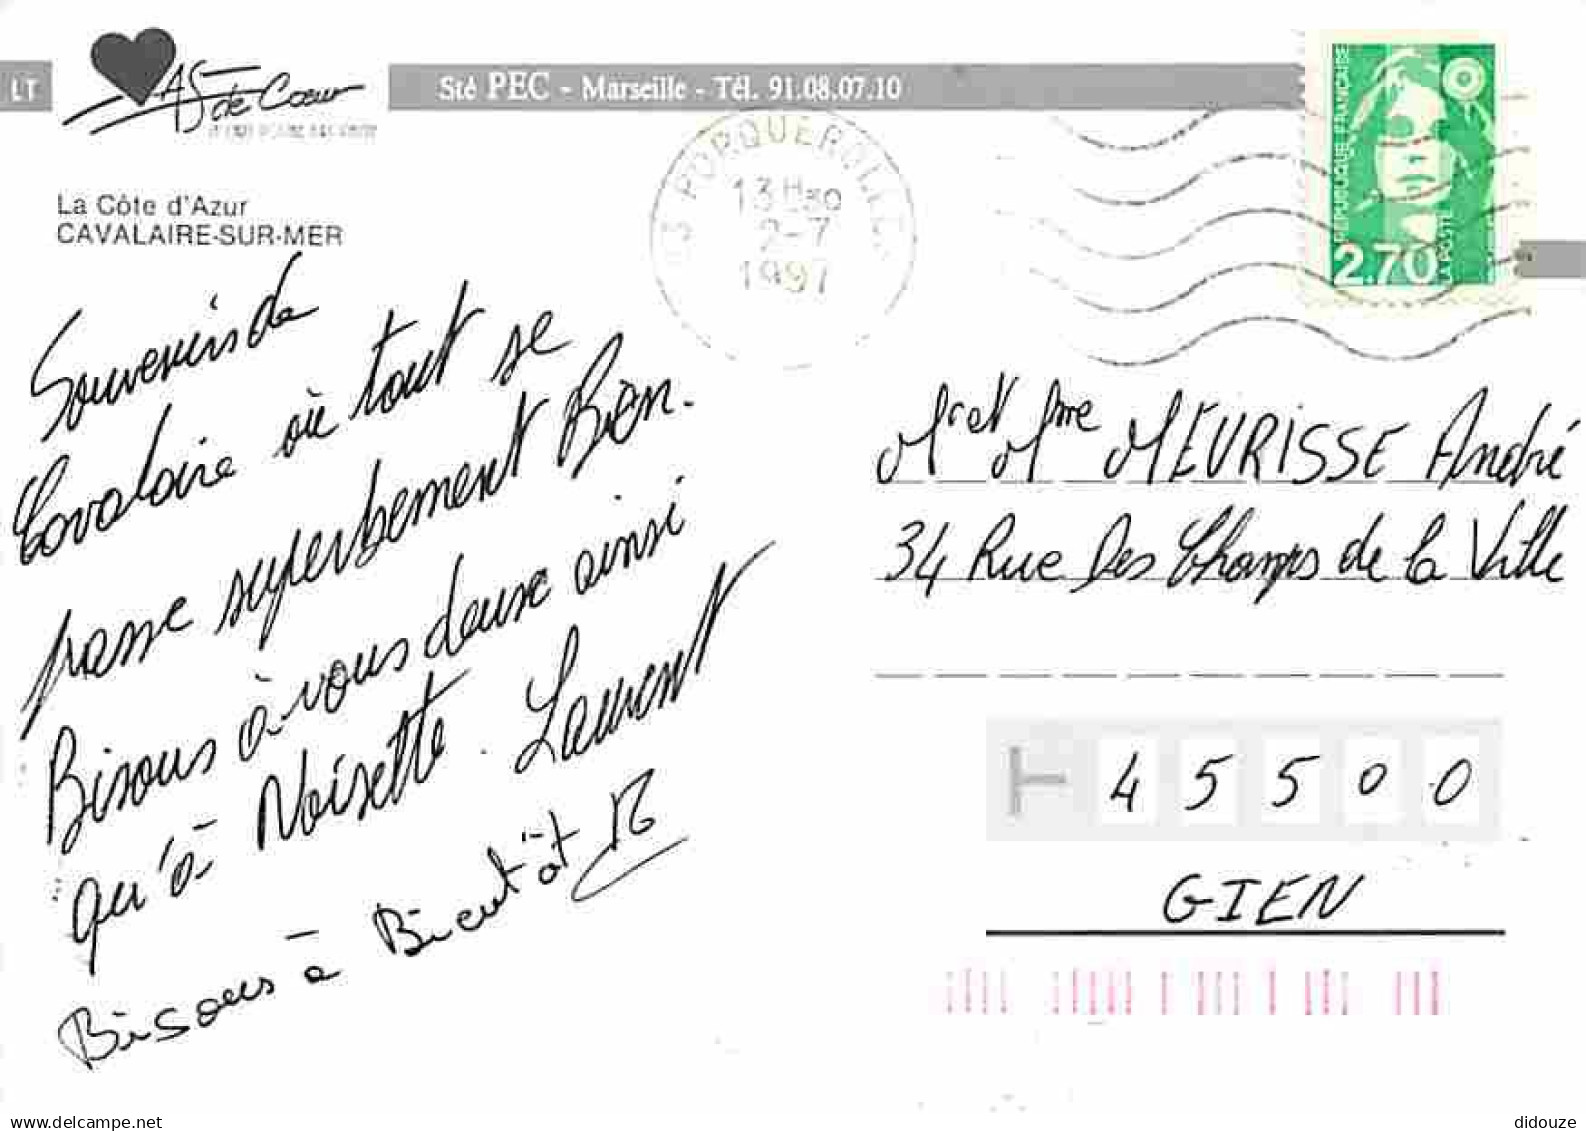 LT
AS de Cœur
Sté PEC - Marseille - Tél. 91.08.07.10
La Côte d'Azur
CAVALAIRE-SUR-MER
83 PORQUEROLLES
13H30
2-7
1997
RÉPUBLIQUE FRANÇAISE
LA POSTE
2.70
Souvenirs de
Cavalaire où tout se
passe superbement Bien.
Bisous à vous deux ainsi
qu'à Noisette. Laurent
Bisous à Bientôt
Mr et Mme MEURISSE André
34 Rue Des Champs de la Ville
45500
GIEN
didouze